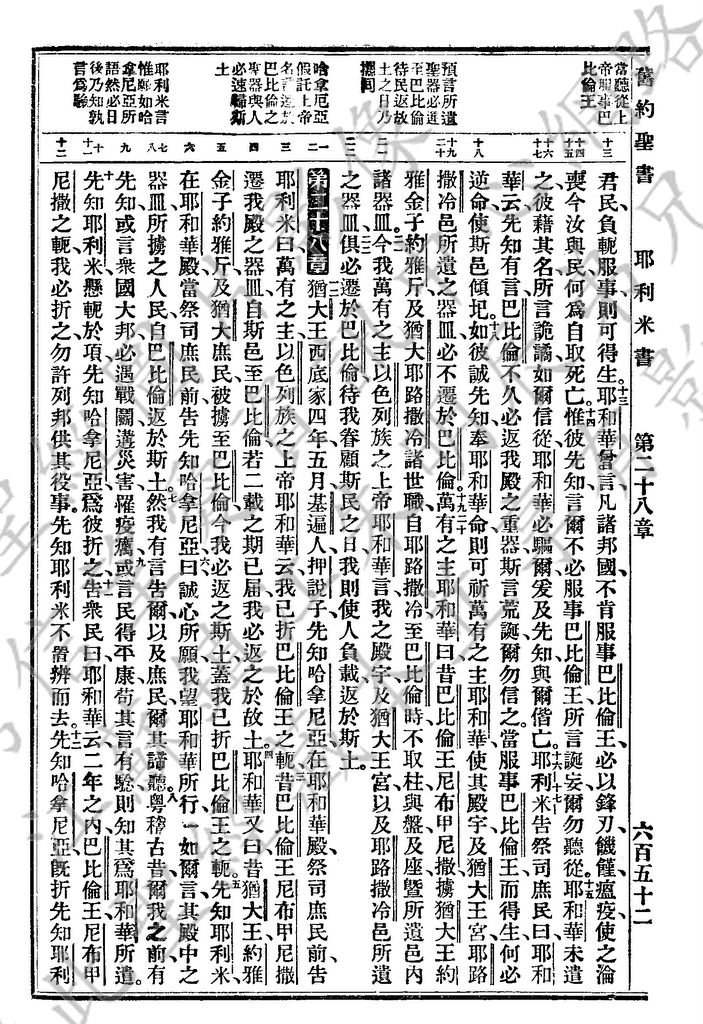 舊約聖書 耶利米書 第二十八章 六百五十二
常聽從上
帝服事巴
比倫王
預言所遺
聖器必遷
至巴比倫
待民返故
土之日乃
攜回
哈拿尼亞
假託上帝
名言遷於
巴比倫之
聖器與人
必速歸斯
土
耶利米言
惟願如哈
拿尼亞所
語然必日
後乃知孰
言為驗
十三 君民負軛服事則可得生耶和華曾言凡諸邦國不肯服事巴比倫王必以鋒刃饑饉瘟疫使之淪
十四 十五 喪今汝與民何為自取死亡惟彼先知言爾不必服事巴比倫王所言誕妄爾勿聽從耶和華未遣
十六 十七 之彼藉其名所言詭譎如爾信從耶和華必驅爾爰及先知與爾偕亡耶利米告祭司庶民曰耶和
華云先知有言巴比倫不久必返我殿之重器斯言荒誕爾勿信之當服事巴比倫王而得生何必
十八 逆命使斯邑傾圮如彼誠先知奉耶和華命則可祈萬有之主耶和華使其殿宇及猶大王宮耶路
十九 二十 撒冷邑所遺之器皿必不遷於巴比倫萬有之主耶和華曰昔巴比倫王尼布甲尼撒擄猶大王約
雅金子約雅斤及猶大耶路撒冷諸世職自耶路撒冷至巴比倫時不取柱與盤及座暨所遺邑內
二一 諸器皿今我萬有之主以色列族之上帝耶和華言我之殿宇及猶大王宮以及耶路撒冷邑所遺
二二 之器皿俱必遷於巴比倫待我眷顧斯民之日我則使人負載返於斯土
一 二 第二十八章 猶大王西底家四年五月基遍人押說子先知哈拿尼亞在耶和華殿祭司庶民前告
三 耶利米曰萬有之主以色列族之上帝耶和華云我已折巴比倫王之軛昔巴比倫王尼布甲尼撒
四 遷我殿之器皿自斯邑至巴比倫若二載之期已屆我必返之於故土耶和華又曰昔猶大王約雅
五 金子約雅斤及猶大庶民被擄至巴比倫今我必返之斯土蓋我已折巴比倫王之軛先知耶利米
六 在耶和華殿當祭司庶民前告先知哈拿尼亞曰誠心所願我望耶和華所行一如爾言其殿中之
七 八 器皿所擄之人民自巴比倫返於斯土然我有言告爾以及庶民爾其諦聽粵稽古昔爾我之前有
九 先知或言眾國大邦必遇戰鬭遘災害罹疫癘或言民得平康苟其言有驗則知其為耶和華所遺
十 十一 先知耶利米懸軛於項先知哈拿尼亞為彼折之告眾民曰耶和華云二年之內巴比倫王尼布甲
十二 尼撒之軛我必折之勿許列邦供其役事先知耶利米不置辨而去先知哈拿尼亞旣折先知耶利